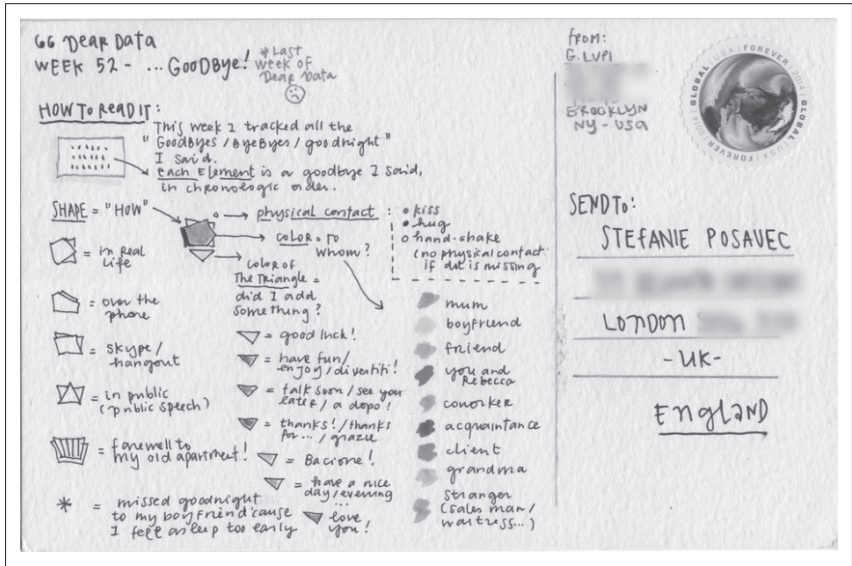 GG Dear Data
WEEK 52 - ... GOODBYE!
* Last
week of
Dear Data
HOW TO READ IT:
This week I tracked all the
"GoodByes / ByeByes / goodnight"
I said.
Each Element is a goodbye I said,
in chronologic order.
SHAPE = "HOW"
= in real
life
= over the
phone
= skype /
hangout
= in public
(public speech)
= farewell to
my old apartment!
* = missed goodnight
to my boyfriend 'cause
I feel asleep too early
physical contact :
• kiss
• hug
o hand-shake
(no physical contact
if dot is missing
COLOR = TO
WHOM?
COLOR OF
The Triangle =
did I add
something?
= good luck!
= have fun/
enjoy / divertiti!
= talk soon / see you
later / a dopo!
= thanks! / thanks
for... / grazie
= Bacione!
= have a nice
day / evening
...
= love
you!
mum
boyfriend
friend
you and
Rebecca
coworker
acquaintance
client
grandma
stranger
(sales man /
waitress...)
FROM:
G. LUPI
BROOKLYN
NY - USA
GLOBAL | USA | FOREVER | 2014 | GLOBAL | USA | FOREVER 2014
SEND TO:
STEFANIE POSAVEC
LONDON
- UK -
ENGLAND